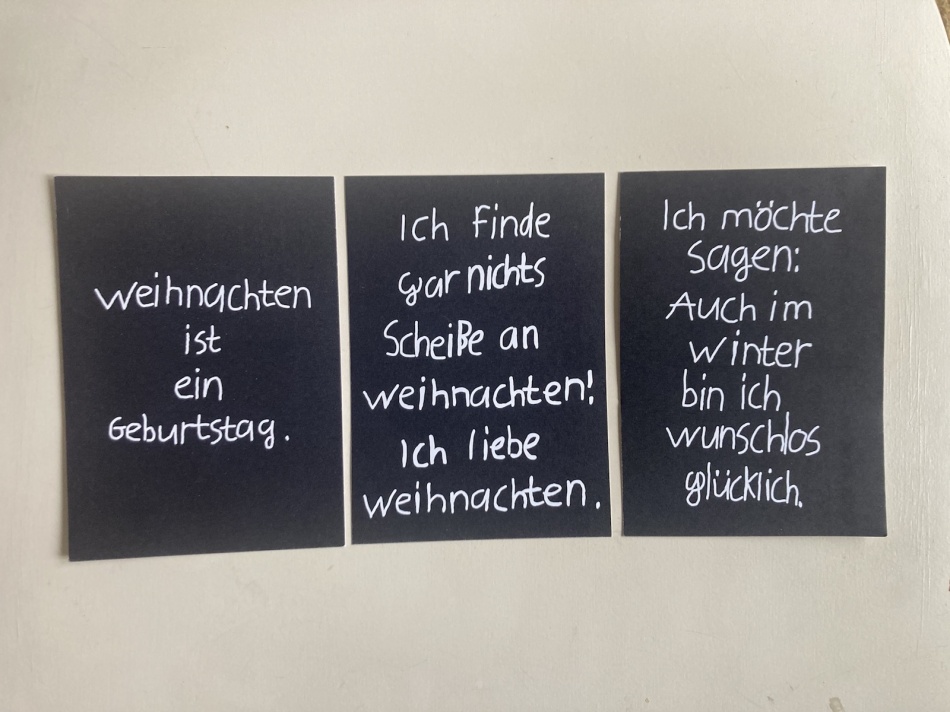 weihnachten
ist
ein
Geburtstag.
Ich finde
gar nichts
Scheiße an
weihnachten!
Ich liebe
weihnachten.
Ich möchte
sagen:
Auch im
winter
bin ich
wunschlos
glücklich.